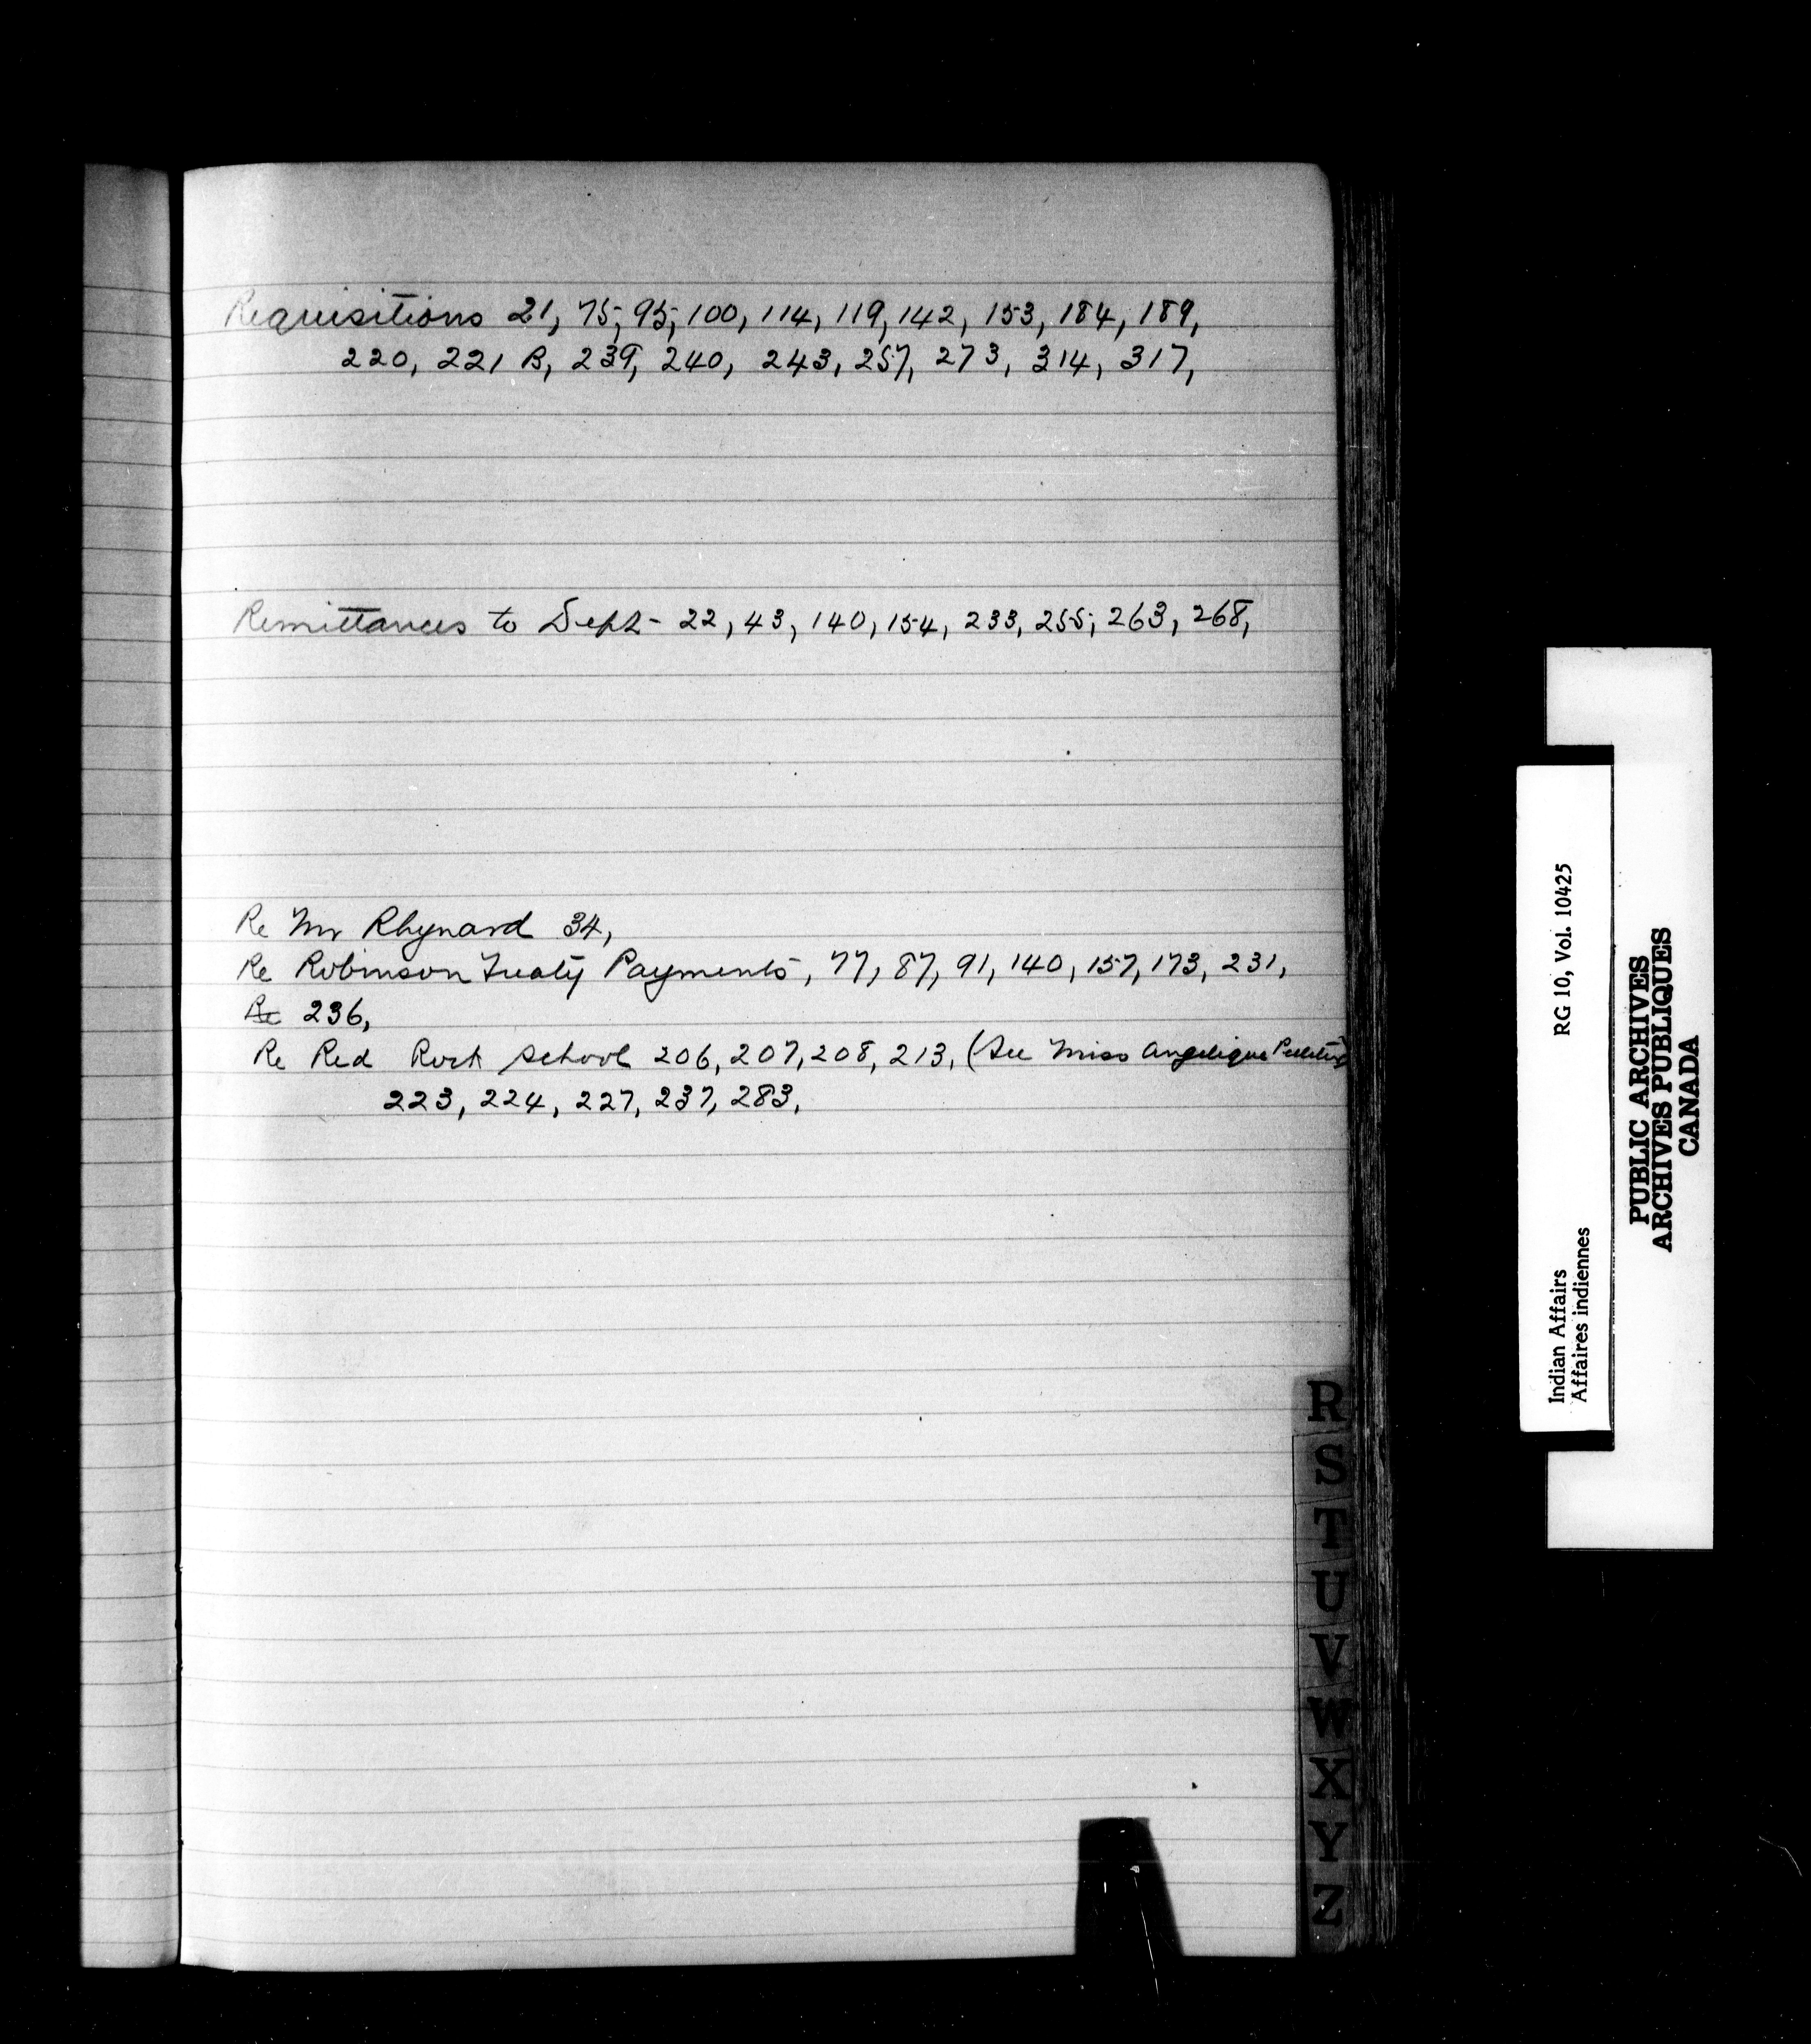 Requisitions 21, 75, 95, 100, 114, 119, 142, 153, 184, 189,
220, 221 B, 239, 240, 243, 257, 273, 314, 317,
Remittances to Dept - 22, 43, 140, 154, 233, 255, 263, 268,
Re Mr Rhynard 34,
Re Robinson Treaty Payments, 77, 87, 91, 140, 157, 173, 231,
Re 236,
Re Red Rock School 206, 207, 208, 213, (See Miss Angelique
223, 224, 227, 237, 283,
R
S
T
U
V
W
X
Y
Z
Indian Affairs RG 10, Vol. 10425
Affaires indiennes
PUBLIC ARCHIVES
ARCHIVES PUBLIQUES
CANADA